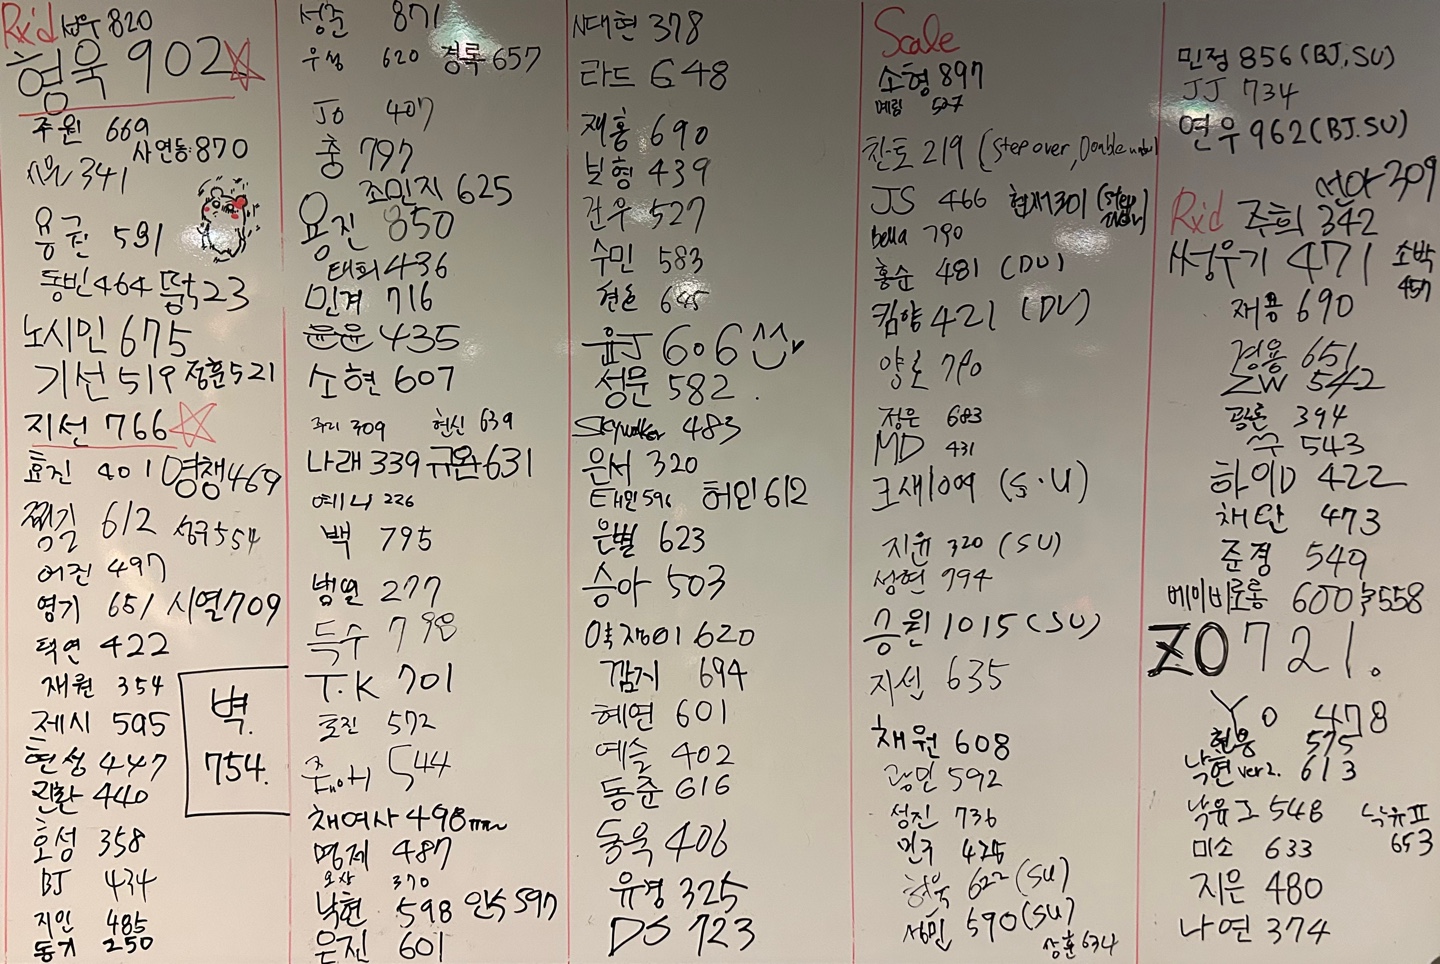 Rx'd 성우 820
형욱 902
주원 669
사연동 870
341
용권 591
동빈 464 떩 23
노시민 675
기선 519 정훈 521
지선 766
효진 401 명쟁 469
찜길 612 성규 554
어진 497
영기 651 시열 709
택연 422
재원 354
제시 595
벽. 754.
현성 447
진환 440
호성 358
BJ 434
지인 485
동기 250
성준 871
우성 620 경록 657
Jo 407
충 797
조민지 625
용진 850
태희 436
민계 716
윤윤 435
소현 607
주리 309 현신 639
나래 339 규완 631
예니 226
백 795
범열 277
득수 798
T.K 701
효진 572
544
채여사 498
명제 487
오상 370
낙현 598 인숙 597
은진 601
시대현 378
라드 648
재홍 690
보형 439
건우 527
수민 583
645
윤J 606
성문 582
Skywalker 483
은서 320
태민 596 허인 612
은별 623
승아 503
역쟁이 620
깜지 694
혜연 601
예슬 402
동준 616
동욱 406
유경 325
DS 723
Scale
소형 897
예림 527
찬토 219 (Step over, Double under)
JS 466 현저 301 (Step over)
bella 790
홍순 481 (DU)
킴양 421 (DU)
양호 790
정은 683
MD 431
크새 1009 (S.U)
지윤 320 (SU)
성현 794
승원 1015 (SU)
지선 635
채원 608
광민 592
성진 736
민주 425
형욱 622 (SU)
성민 590 (SU)
상훈 634
민정 856 (BJ.SU)
JJ 734
연우 962 (BJ.SU)
선아 309
Rx'd 주희 342
썽우기 471 소박 457
재용 690
경용 651
ZW 542
광륜 394
쑤 543
하이D 422
채단 473
준경 549
베이비로롱 600 558
ZO 721.
Yo 478
현웅 575
낙현 ver2. 613
낙유고 548 낙유표 653
미소 633
지은 480
나연 374